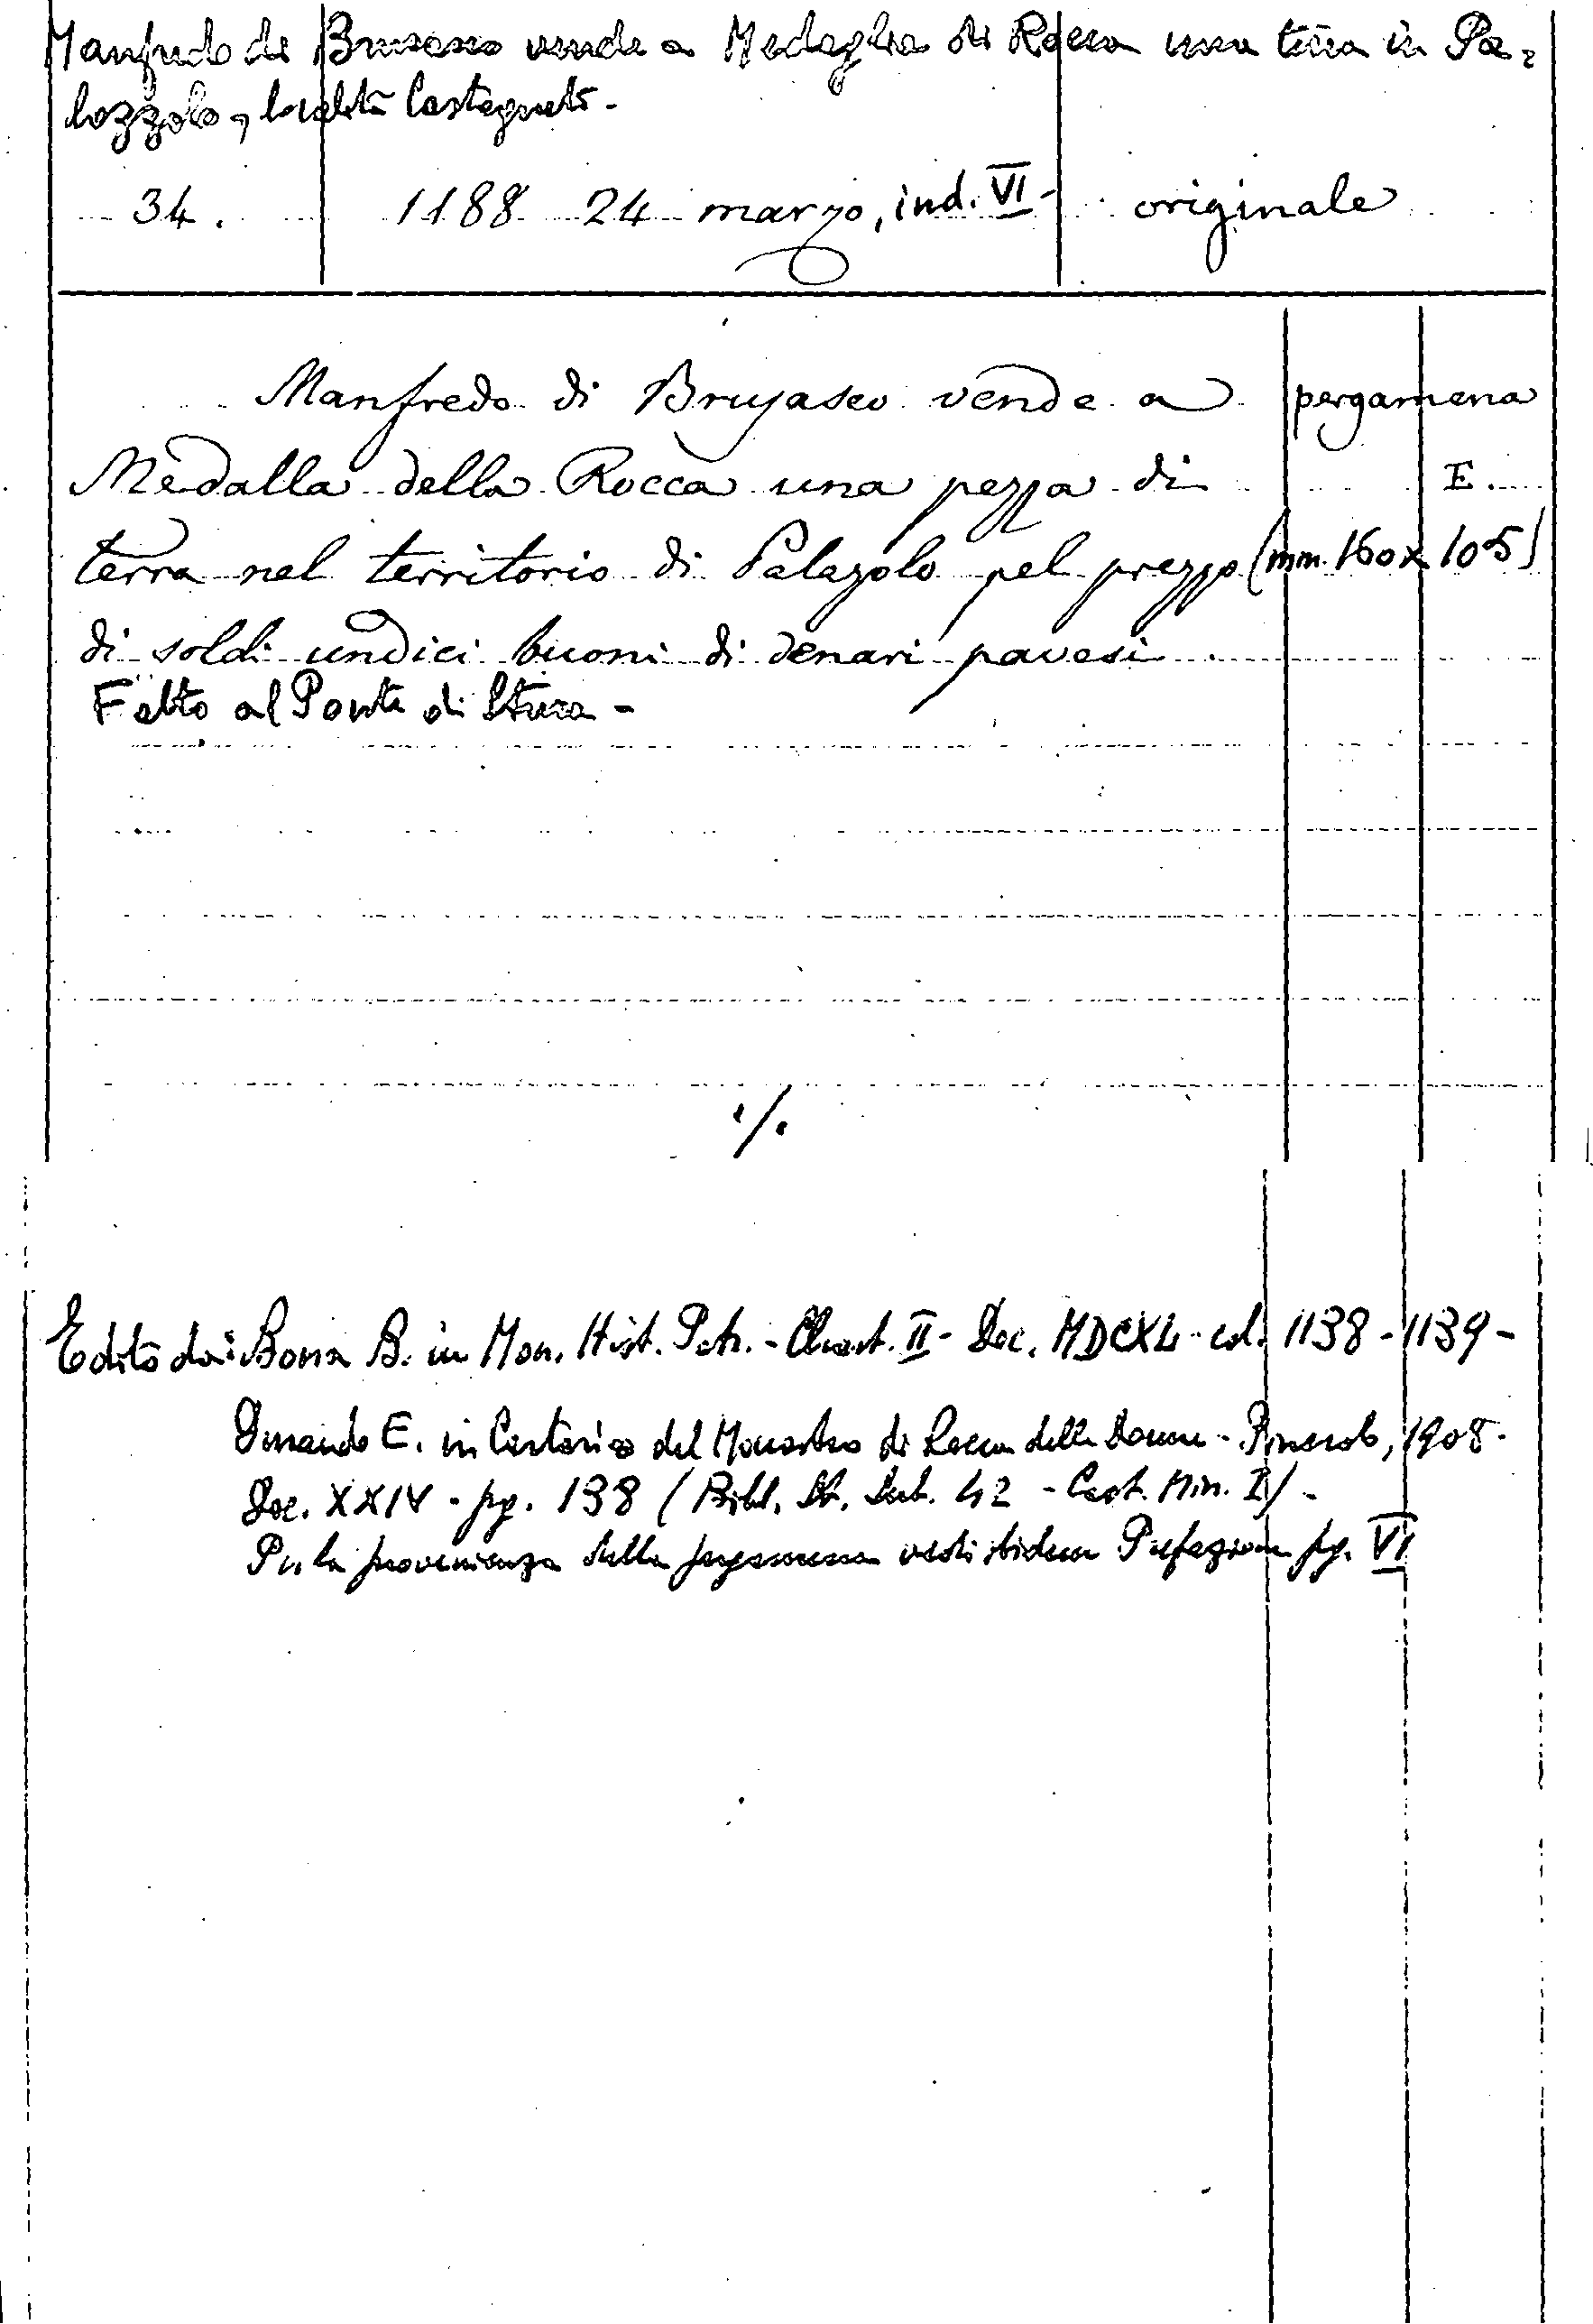 Manfredo di Brusasco vende a Medaglia di Rocca una terra in Pa-
lazzolo, località Castagneto -
34. 1188 24 marzo, ind. VI - originale
Manfredo di Brusasco vende a pergamena
Medalla della Rocca una pezza di E.
terra nel territorio di Palazolo pel prezzo (mm. 160 x 105)
di soldi undici buoni di denari pavesi.
Fatto al Ponte di Stura -
./.
Edito da: Bona B. in Mon. Hist. Patr. - Chart. II - Doc. MDCXL - col. 1138 - 1139 -
Durando E. in Cartario del Monastero di Rocca delle Donne - Pinerolo, 1908 -
Doc. XXIV - pg. 138 (Bibl. St. Sub. 42 - Cart. Min. I) -
Per la provenienza della pergamena vedi ibidem Prefazione pg. VI